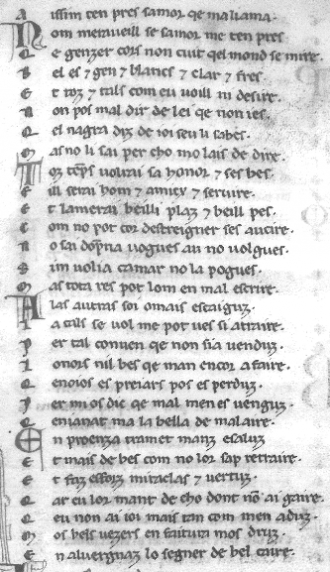 A issim ten pres samor qe maliama.
N om meraveill se samor me ten pres
Q e genzer cors non cuit qel mond se mire.
B el es ⁊ gen ⁊ blancs ⁊ clar ⁊ fres
E t toz ⁊ tals com eu voill ni desire.
N on pos mal dir de lei qe non ies.
Q el nagra diz de ioi seu li sabes.
M as no li sai per cho mo lais de dire.
T oz tēps volrai sa honor ⁊ ses bes.
E ill serai hom ⁊ amics ⁊ servire.
E t lamerai beilli plaz ⁊ beill pes.
C om no pot cor destreigner ses aucire.
N o sai dōpna volgues au no volgues.
S im volia camar no la pogues.
M as tota res pot lom en mal escrire.
A las autras soi omais escaiguz.
L a cals se vol me pot ves si atraire.
P er tal conven qe non sia venduz.
L onors nil bes qe man encor a faire.
Q enoios es preiars pos es perduz.
P er mi os dic qe mal men es venguz.
Q enianat ma la bella de malaire.
E n proenza tramet manz esaluz
E t mais de bes com no lor sap retraire.
E t faz esforz miracles ⁊ vertuz.
Q ar eu lor mant de cho dont nō ai gaire.
Q eu non ai ioi mais tan com men aduz.
M os bels vezers en faitura mos druz.
E n alvergnaz lo segner de bel caire.